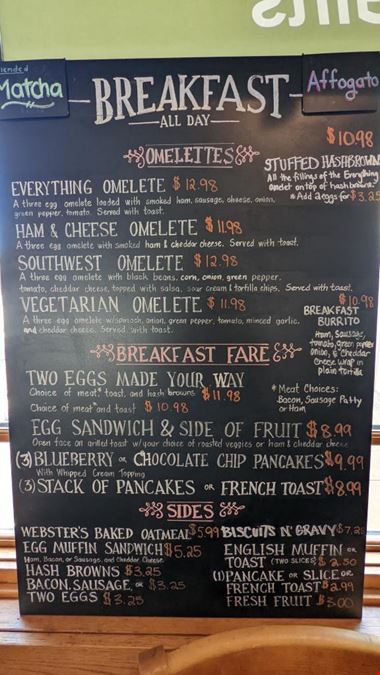 Blended
Matcha
Affogato
BREAKFAST
ALL DAY
OMELETTES
EVERYTHING OMELETE $12.98
A three egg omelete loaded with smoked ham, sausage, cheese, onion,
green pepper, tomato. Served with toast.
HAM & CHEESE OMELETE $11.98
A three egg omelete with smoked ham & cheddar cheese. Served with toast.
SOUTHWEST OMELETE $12.98
A three egg omelete with black beans, corn, onion, green pepper,
tomato, cheddar cheese, topped with salsa, sour cream & tortilla chips. Served with toast.
VEGETARIAN OMELETE $11.98
A three egg omelete w/spinach, onion, green pepper, tomato, minced garlic,
and cheddar cheese. Served with toast.
$10.98
STUFFED HASHBROWNS
All the fillings of the Everything
omelet on top of hash browns.
*Add 2 eggs for $3.25
$10.98
BREAKFAST
BURRITO
Ham, Sausage,
tomato, green pepper
Onion, & Cheddar
Cheese wrap in
plain tortilla
BREAKFAST FARE
TWO EGGS MADE YOUR WAY
Choice of meat,* toast, and hash browns $11.98
Choice of meat* and toast $10.98
*Meat Choices:
Bacon, Sausage Patty
or Ham
EGG SANDWICH & SIDE OF FRUIT $8.99
Open face on grilled toast w/your choice of roasted veggies or ham & cheddar cheese
(3) BLUEBERRY or CHOCOLATE CHIP PANCAKES $9.99
With Whipped Cream Topping
(3) STACK OF PANCAKES OR FRENCH TOAST $8.99
SIDES
WEBSTER'S BAKED OATMEAL $5.99
EGG MUFFIN SANDWICH $5.25
Ham, Bacon, or Sausage, and Cheddar Cheese
HASH BROWNS $3.25
BACON, SAUSAGE, OR $3.25
TWO EGGS $3.25
BISCUITS N' GRAVY $7.25
ENGLISH MUFFIN OR
TOAST (TWO SLICES) $2.50
(1) PANCAKE OR SLICE OR
FRENCH TOAST $2.99
FRESH FRUIT $3.00